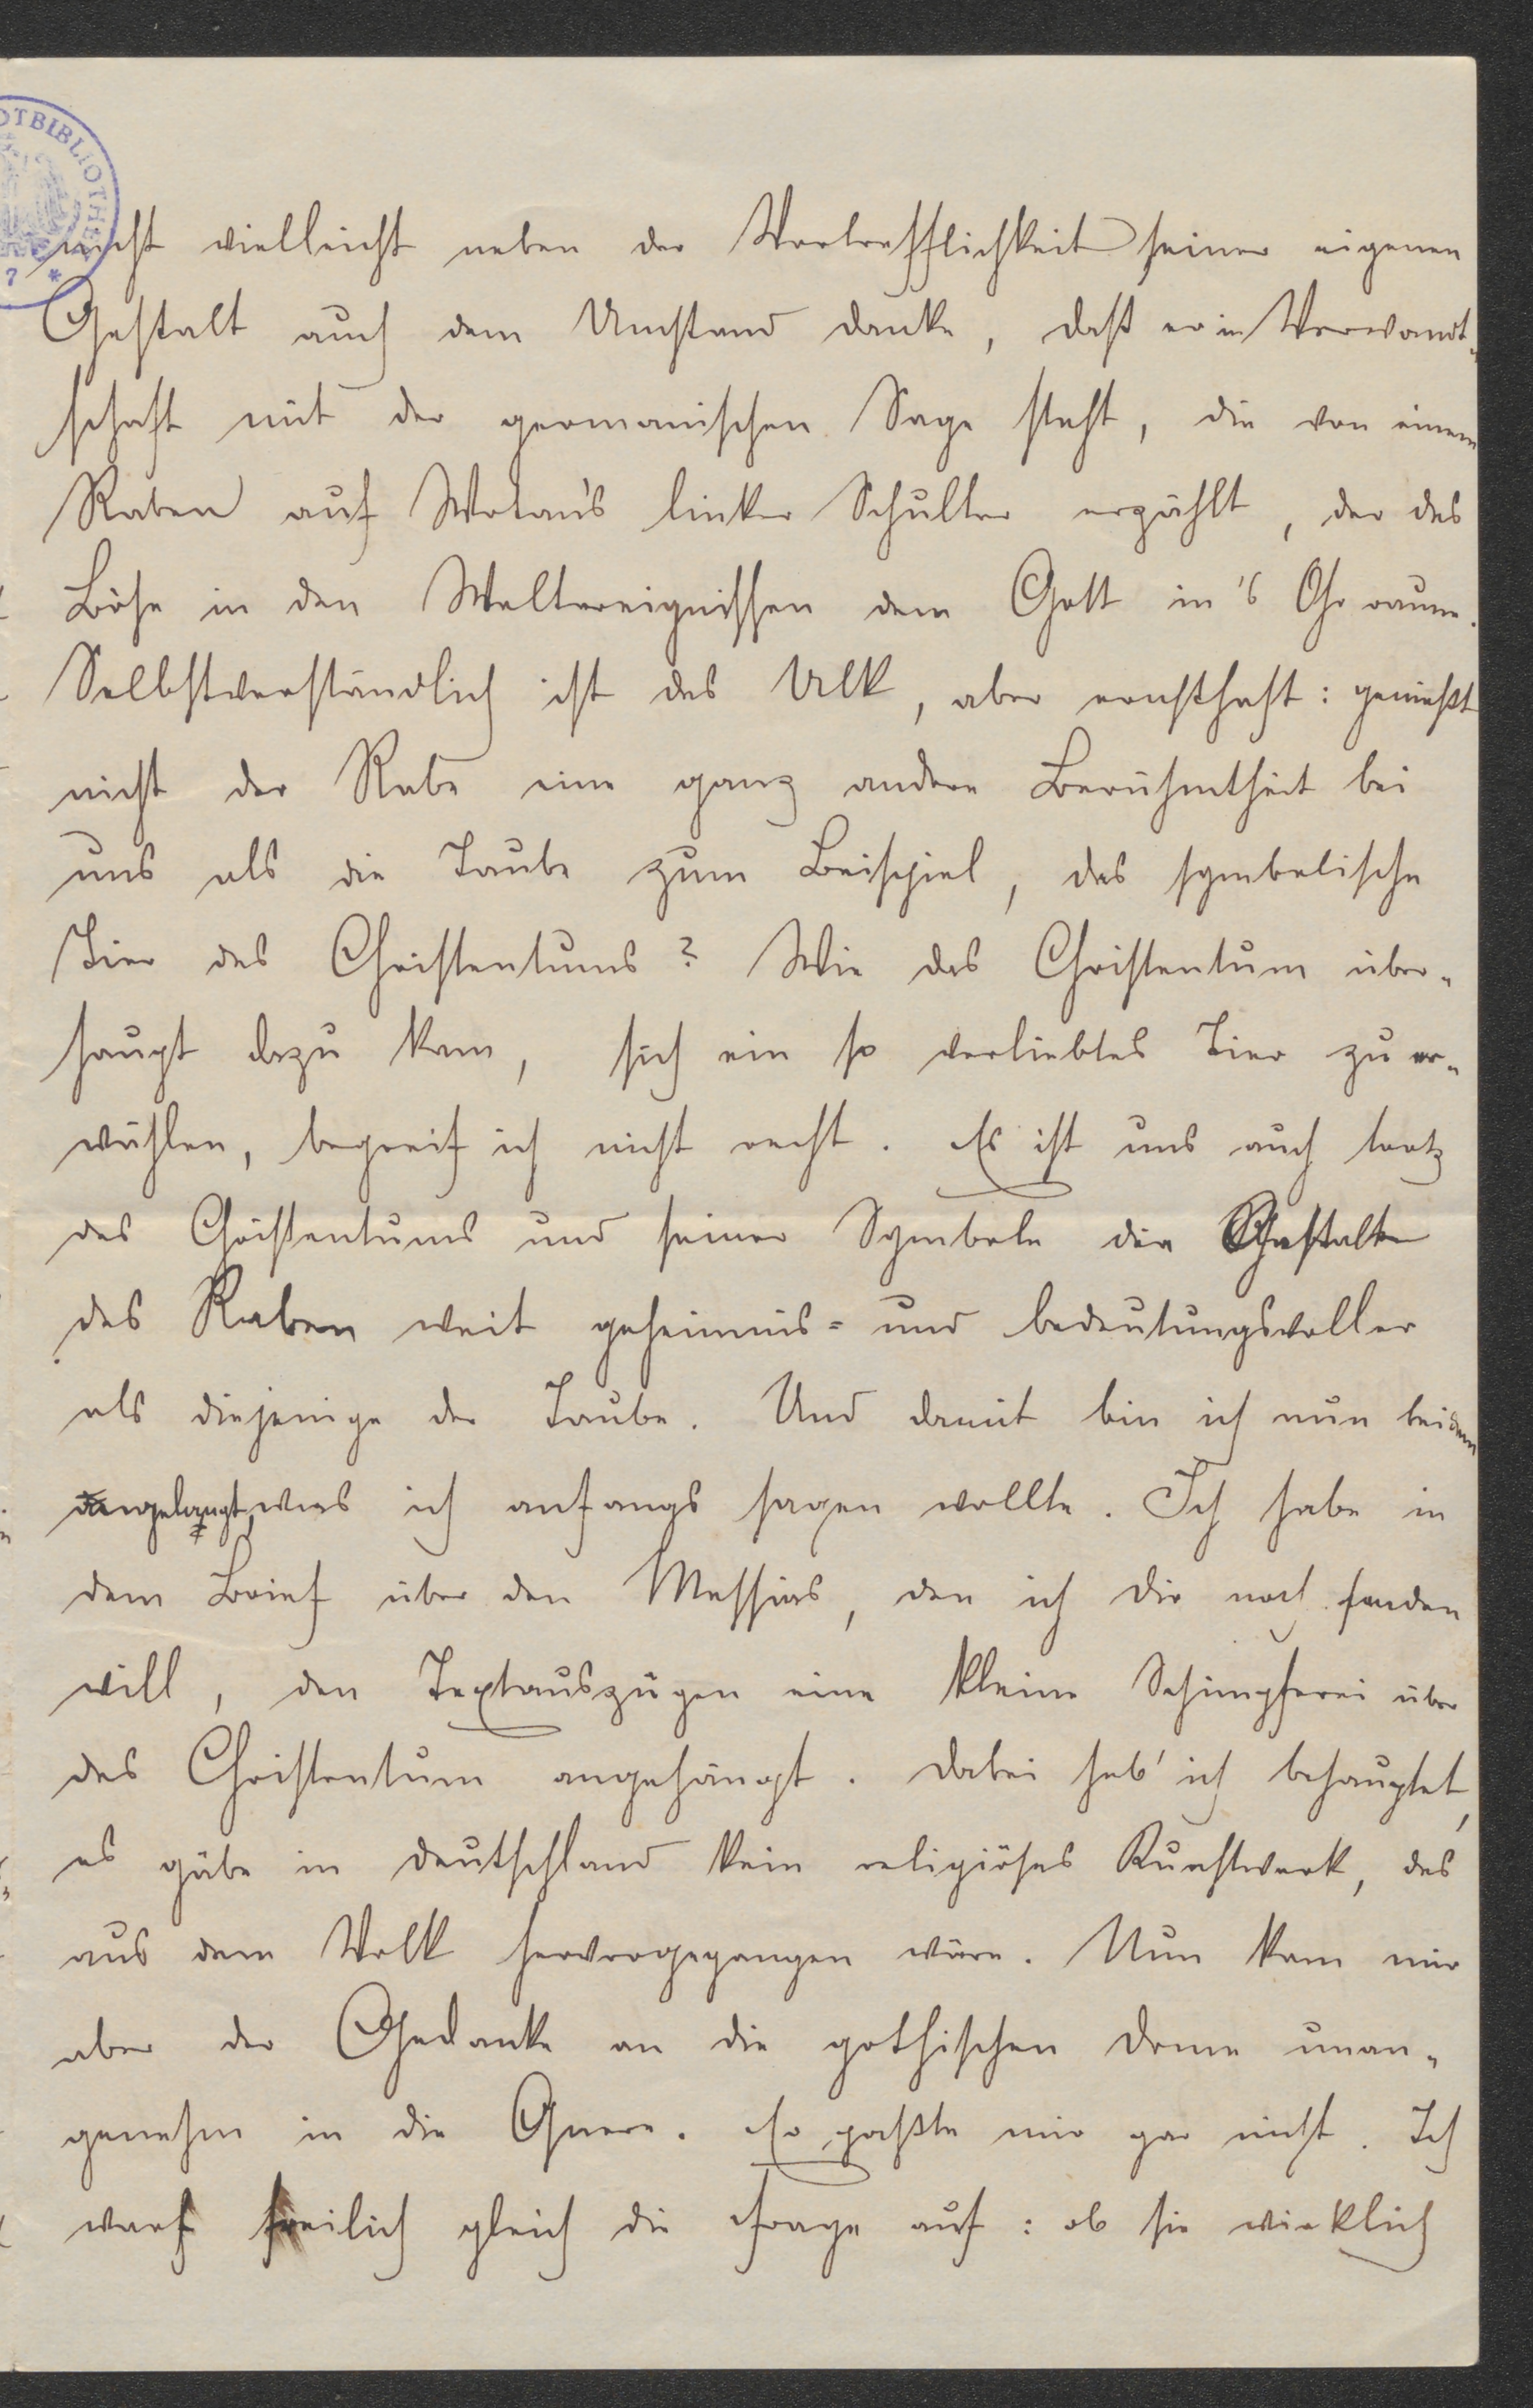 OTBIBLIOTHEK
7 *
nicht vielleicht neben der Vortrefflichkeit seiner eigenen
Gestalt auch dem Umstand danke, daß er in Verwandt-
schaft mit der germanischen Sage steht, die von einem
Raben auf Wotans linker Schulter erzählt, der das
Böse in den Weltereignissen dem Gott in's Ohr raune.
Selbstverständlich ist das Ulk, aber ernsthaft: genießt
nicht der Rabe eine ganz andere Berühmtheit bei
uns als die Taube zum Beispiel, das symbolische
Tier des Christentums? Wie das Christentum über-
haupt dazu kam, sich ein so verliebtes Tier zu er-
wählen, begreif ich nicht recht. Es ist uns auch trotz
des Christentums und seiner Symbole die Gestalt
des Raben weit geheimnis- und bedeutungsvoller
als diejenige der Taube. Und damit bin ich nun bei dem
angelangt, was ich anfangs sagen wollte. Ich habe in
dem Brief über den Messias, den ich dir noch senden
will, den Textauszügen eine kleine Schimpferei über
das Christentum angehängt. Dabei hab' ich behauptet,
es gäbe in Deutschland kein religiöses Kunstwerk, das
aus dem Volk hervorgegangen wäre. Nun kam mir
aber der Gedanke an die gothischen Dome unan-
genehm in die Quere. Er paßte mir gar nicht. Ich
warf freilich gleich die Frage auf: ob sie wirklich